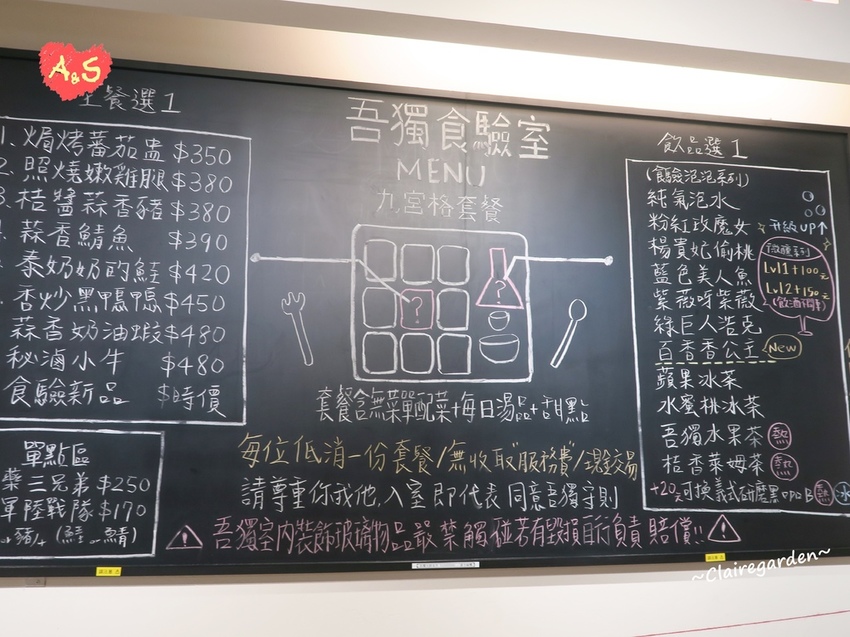 A&S
主餐選1
1. 焗烤蕃茄盅 $350
2. 照燒嫩雞腿 $380
3. 桔醬蒜香豬 $380
蒜香鯖魚 $390
秦奶奶的鮭 $420
香炒黑鴨鴨 $450
蒜香奶油蝦 $480
秘滷小牛 $480
食驗新品 $時價
單點區
藥三兄弟 $250
軍陸戰隊 $170
豬 (鮭 鯖)
吾獨食驗室
MENU
九宮格套餐
?
?
套餐含無菜單配菜+每日湯品+甜點
每位低消一份套餐/無收取"服務費"/現金交易
請尊重你我他,入室即代表同意吾獨守則
吾獨室內裝飾玻璃物品嚴禁觸碰若有毀損自行負責賠償!!
飲品選1
(食驗泡泡系列)
純氣泡水
粉紅玫魔女
楊貴妃偷桃
藍色美人魚
紫薇呀紫薇
綠巨人浩克
百香香公主 New
蘋果冰茶
水蜜桃冰茶
吾獨水果茶 熱
桔香萊姆茶 熱
+20元可換義式研磨黑 熱 冰
升級UP↑
微醺系列
Lv1+100元
Lv2+150元
~Clairegarden~